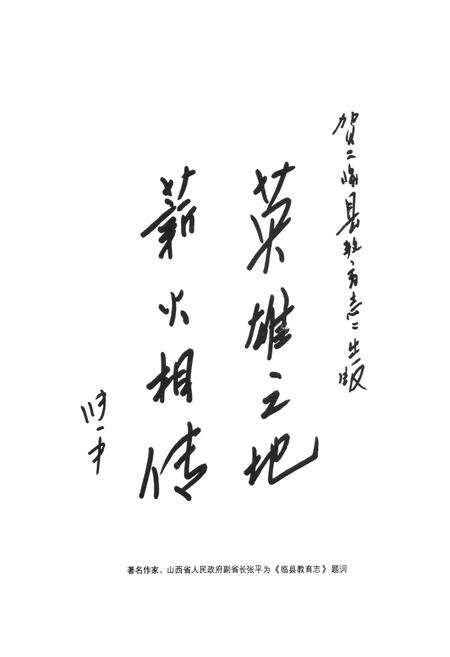 贺《临县教育志》出版
英雄之地
薪火相传
著名作家、山西省人民政府副省长张平为《临县教育志》题词